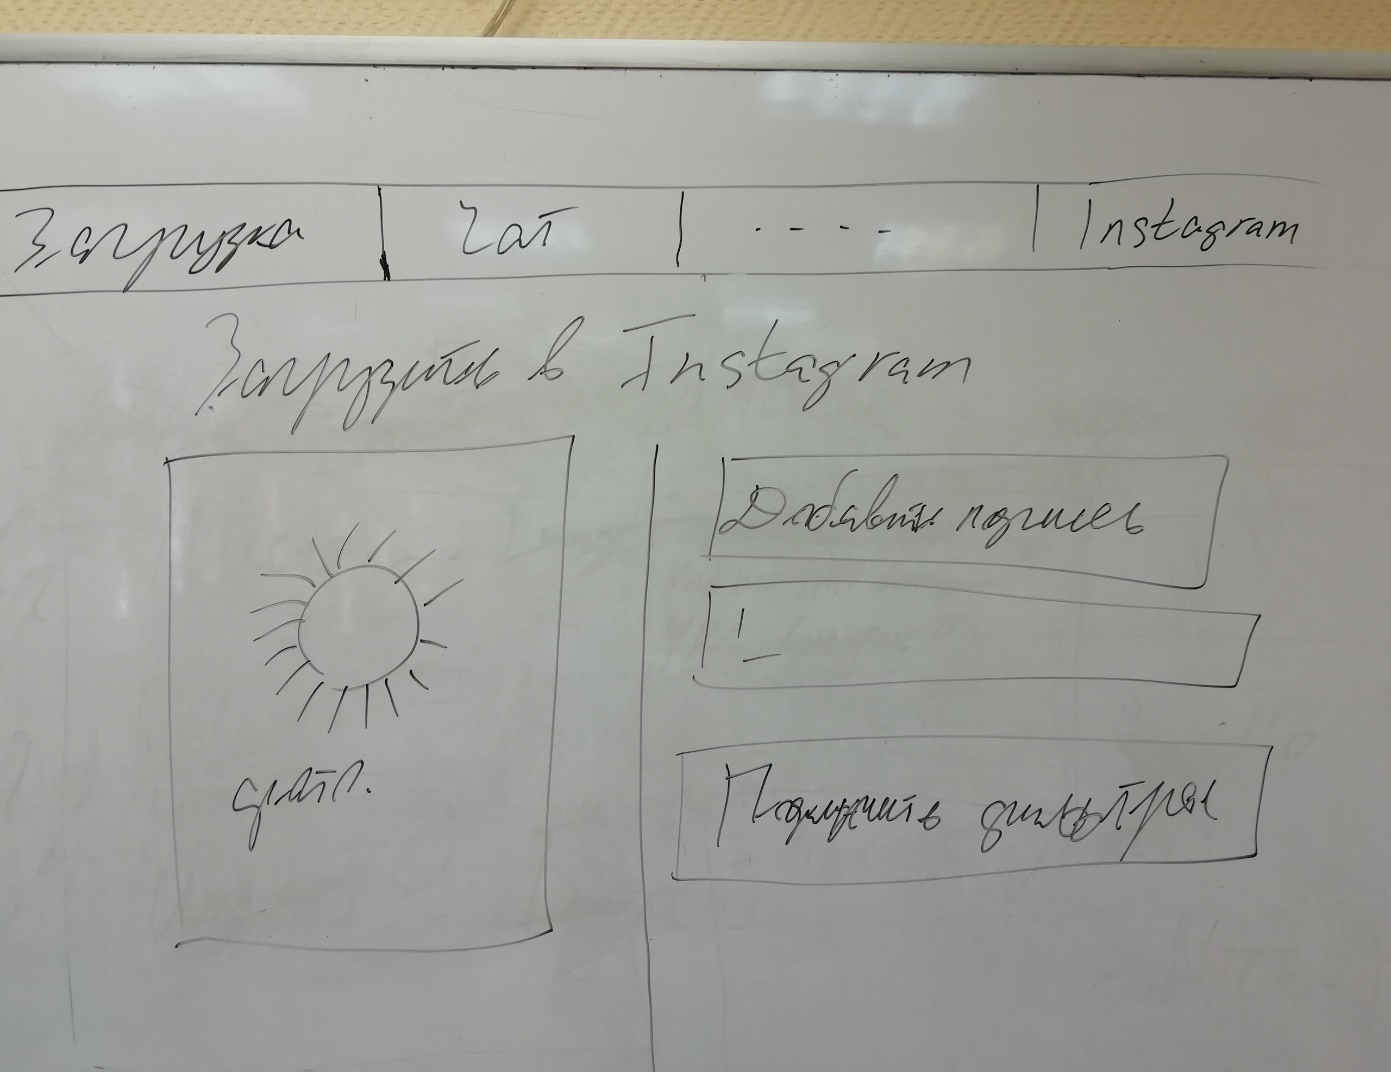 Загрузка | Чат | - - - - | Instagram
Загрузить в Instagram
Добавить подпись
Получить фильтры